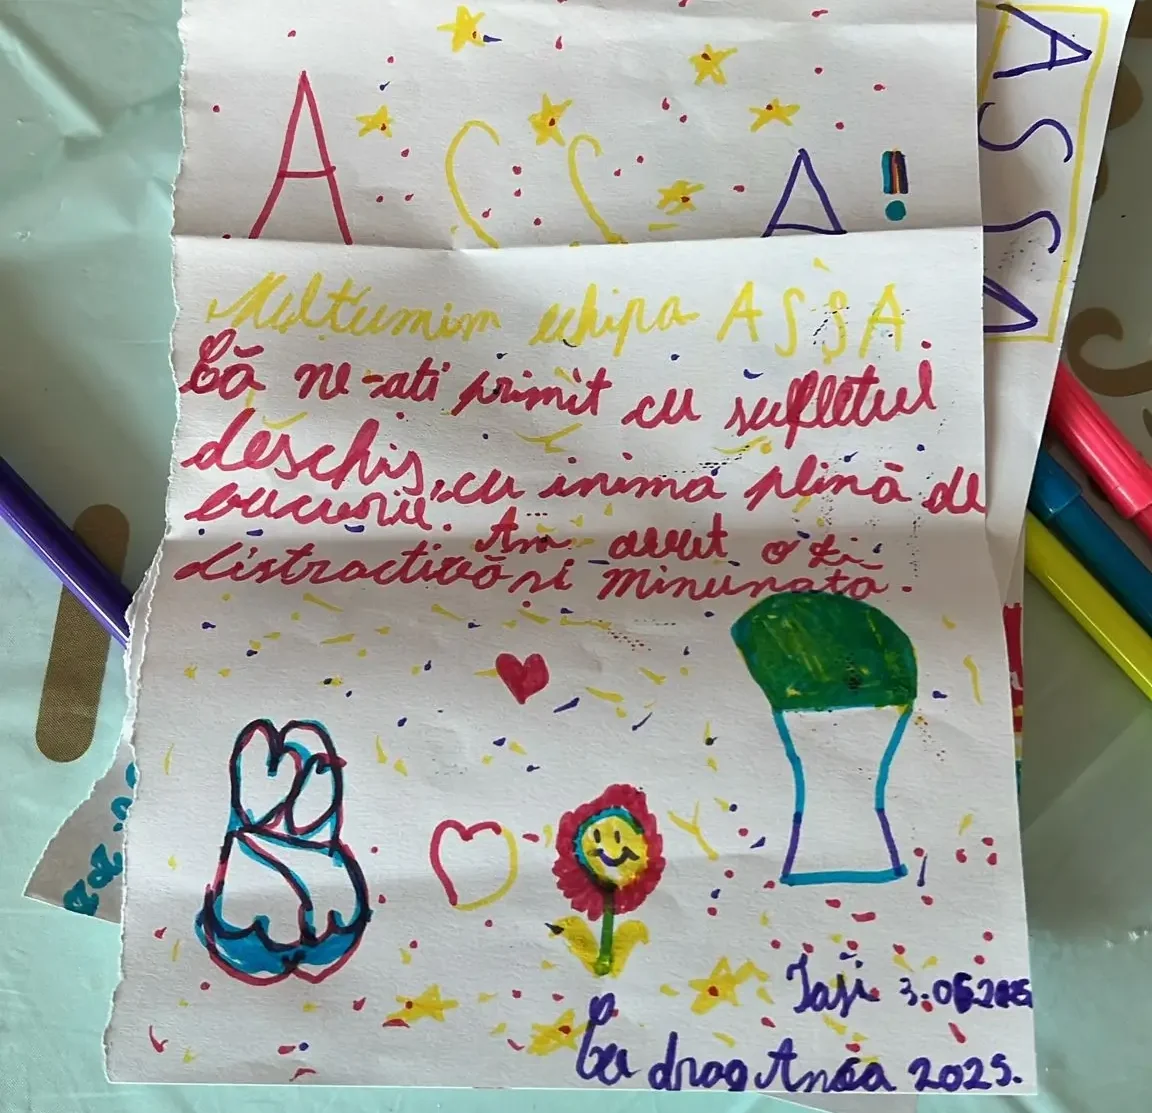 ASSA!
Multumim echipa ASSA.
Că ne-ati primit cu sufletul
deschis, cu inima plină de
bucurie. Am avut o zi
distractivă si minunată.
Iași 3.06.2025
Cu drag Anca 2025.
ASSA